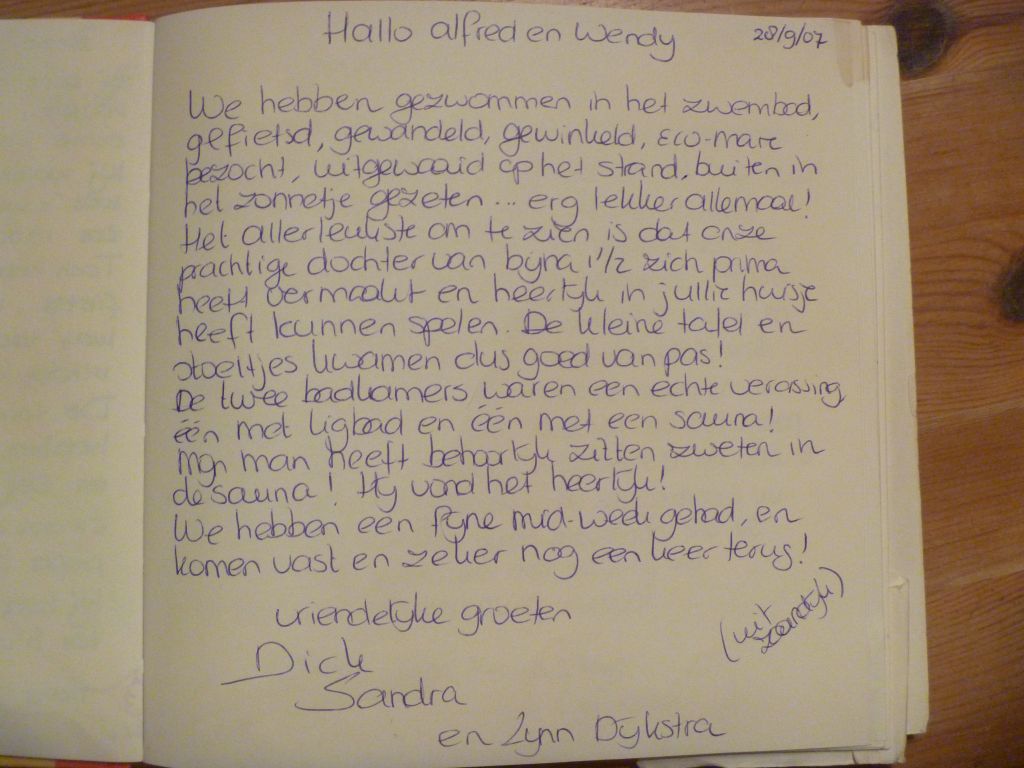 Hallo alfred en Wendy
28/9/07
We hebben gezwommen in het zwembad,
gefietsd, gewandeld, gewinkeld, Eco-mare
bezocht, uitgewaaid op het strand, buiten in
het zonnetje gezeten... erg lekker allemaal!
Het allerleukste om te zien is dat onze
prachtige dochter van bijna 1 1/2 zich prima
heeft vermaakt en heerlijk in jullie huisje
heeft kunnen spelen. De kleine tafel en
stoeltjes kwamen dus goed van pas!
De twee badkamers waren een echte verassing
één met ligbad en één met een sauna!
Mijn man heeft behoorlijk zitten zweten in
de sauna! Hij vond het heerlijk!
We hebben een fijne mid-week gehad, en
komen vast en zeker nog een keer terug!
vriendelijke groeten
(uit
Dick
Sandra
en Lynn Dijkstra